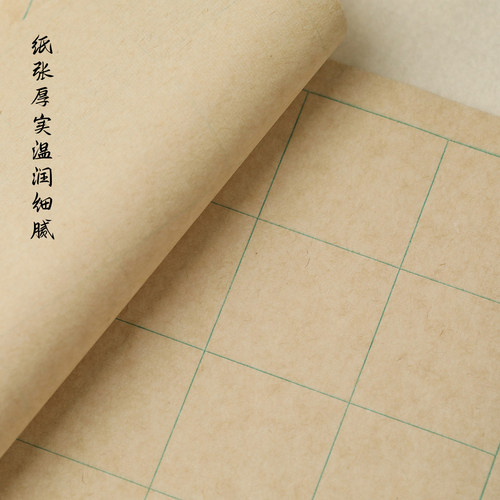 纸张厚实温润细腻